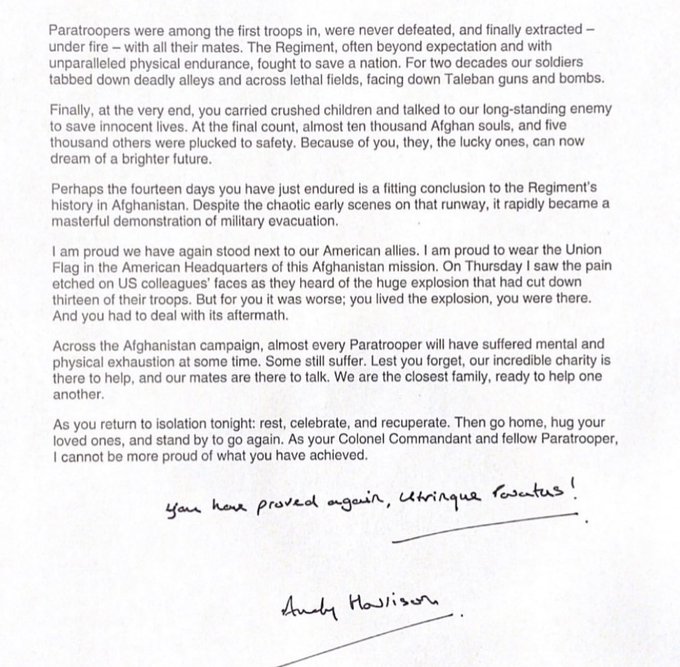 Paratroopers were among the first troops in, were never defeated, and finally extracted –
under fire – with all their mates. The Regiment, often beyond expectation and with
unparalleled physical endurance, fought to save a nation. For two decades our soldiers
tabbed down deadly alleys and across lethal fields, facing down Taleban guns and bombs.
Finally, at the very end, you carried crushed children and talked to our long-standing enemy
to save innocent lives. At the final count, almost ten thousand Afghan souls, and five
thousand others were plucked to safety. Because of you, they, the lucky ones, can now
dream of a brighter future.
Perhaps the fourteen days you have just endured is a fitting conclusion to the Regiment's
history in Afghanistan. Despite the chaotic early scenes on that runway, it rapidly became a
masterful demonstration of military evacuation.
I am proud we have again stood next to our American allies. I am proud to wear the Union
Flag in the American Headquarters of this Afghanistan mission. On Thursday I saw the pain
etched on US colleagues' faces as they heard of the huge explosion that had cut down
thirteen of their troops. But for you it was worse; you lived the explosion, you were there.
And you had to deal with its aftermath.
Across the Afghanistan campaign, almost every Paratrooper will have suffered mental and
physical exhaustion at some time. Some still suffer. Lest you forget, our incredible charity is
there to help, and our mates are there to talk. We are the closest family, ready to help one
another.
As you return to isolation tonight: rest, celebrate, and recuperate. Then go home, hug your
loved ones, and stand by to go again. As your Colonel Commandant and fellow Paratrooper,
I cannot be more proud of what you have achieved.
You have proved again, Utrinque Paratus!
Andy Harrison.